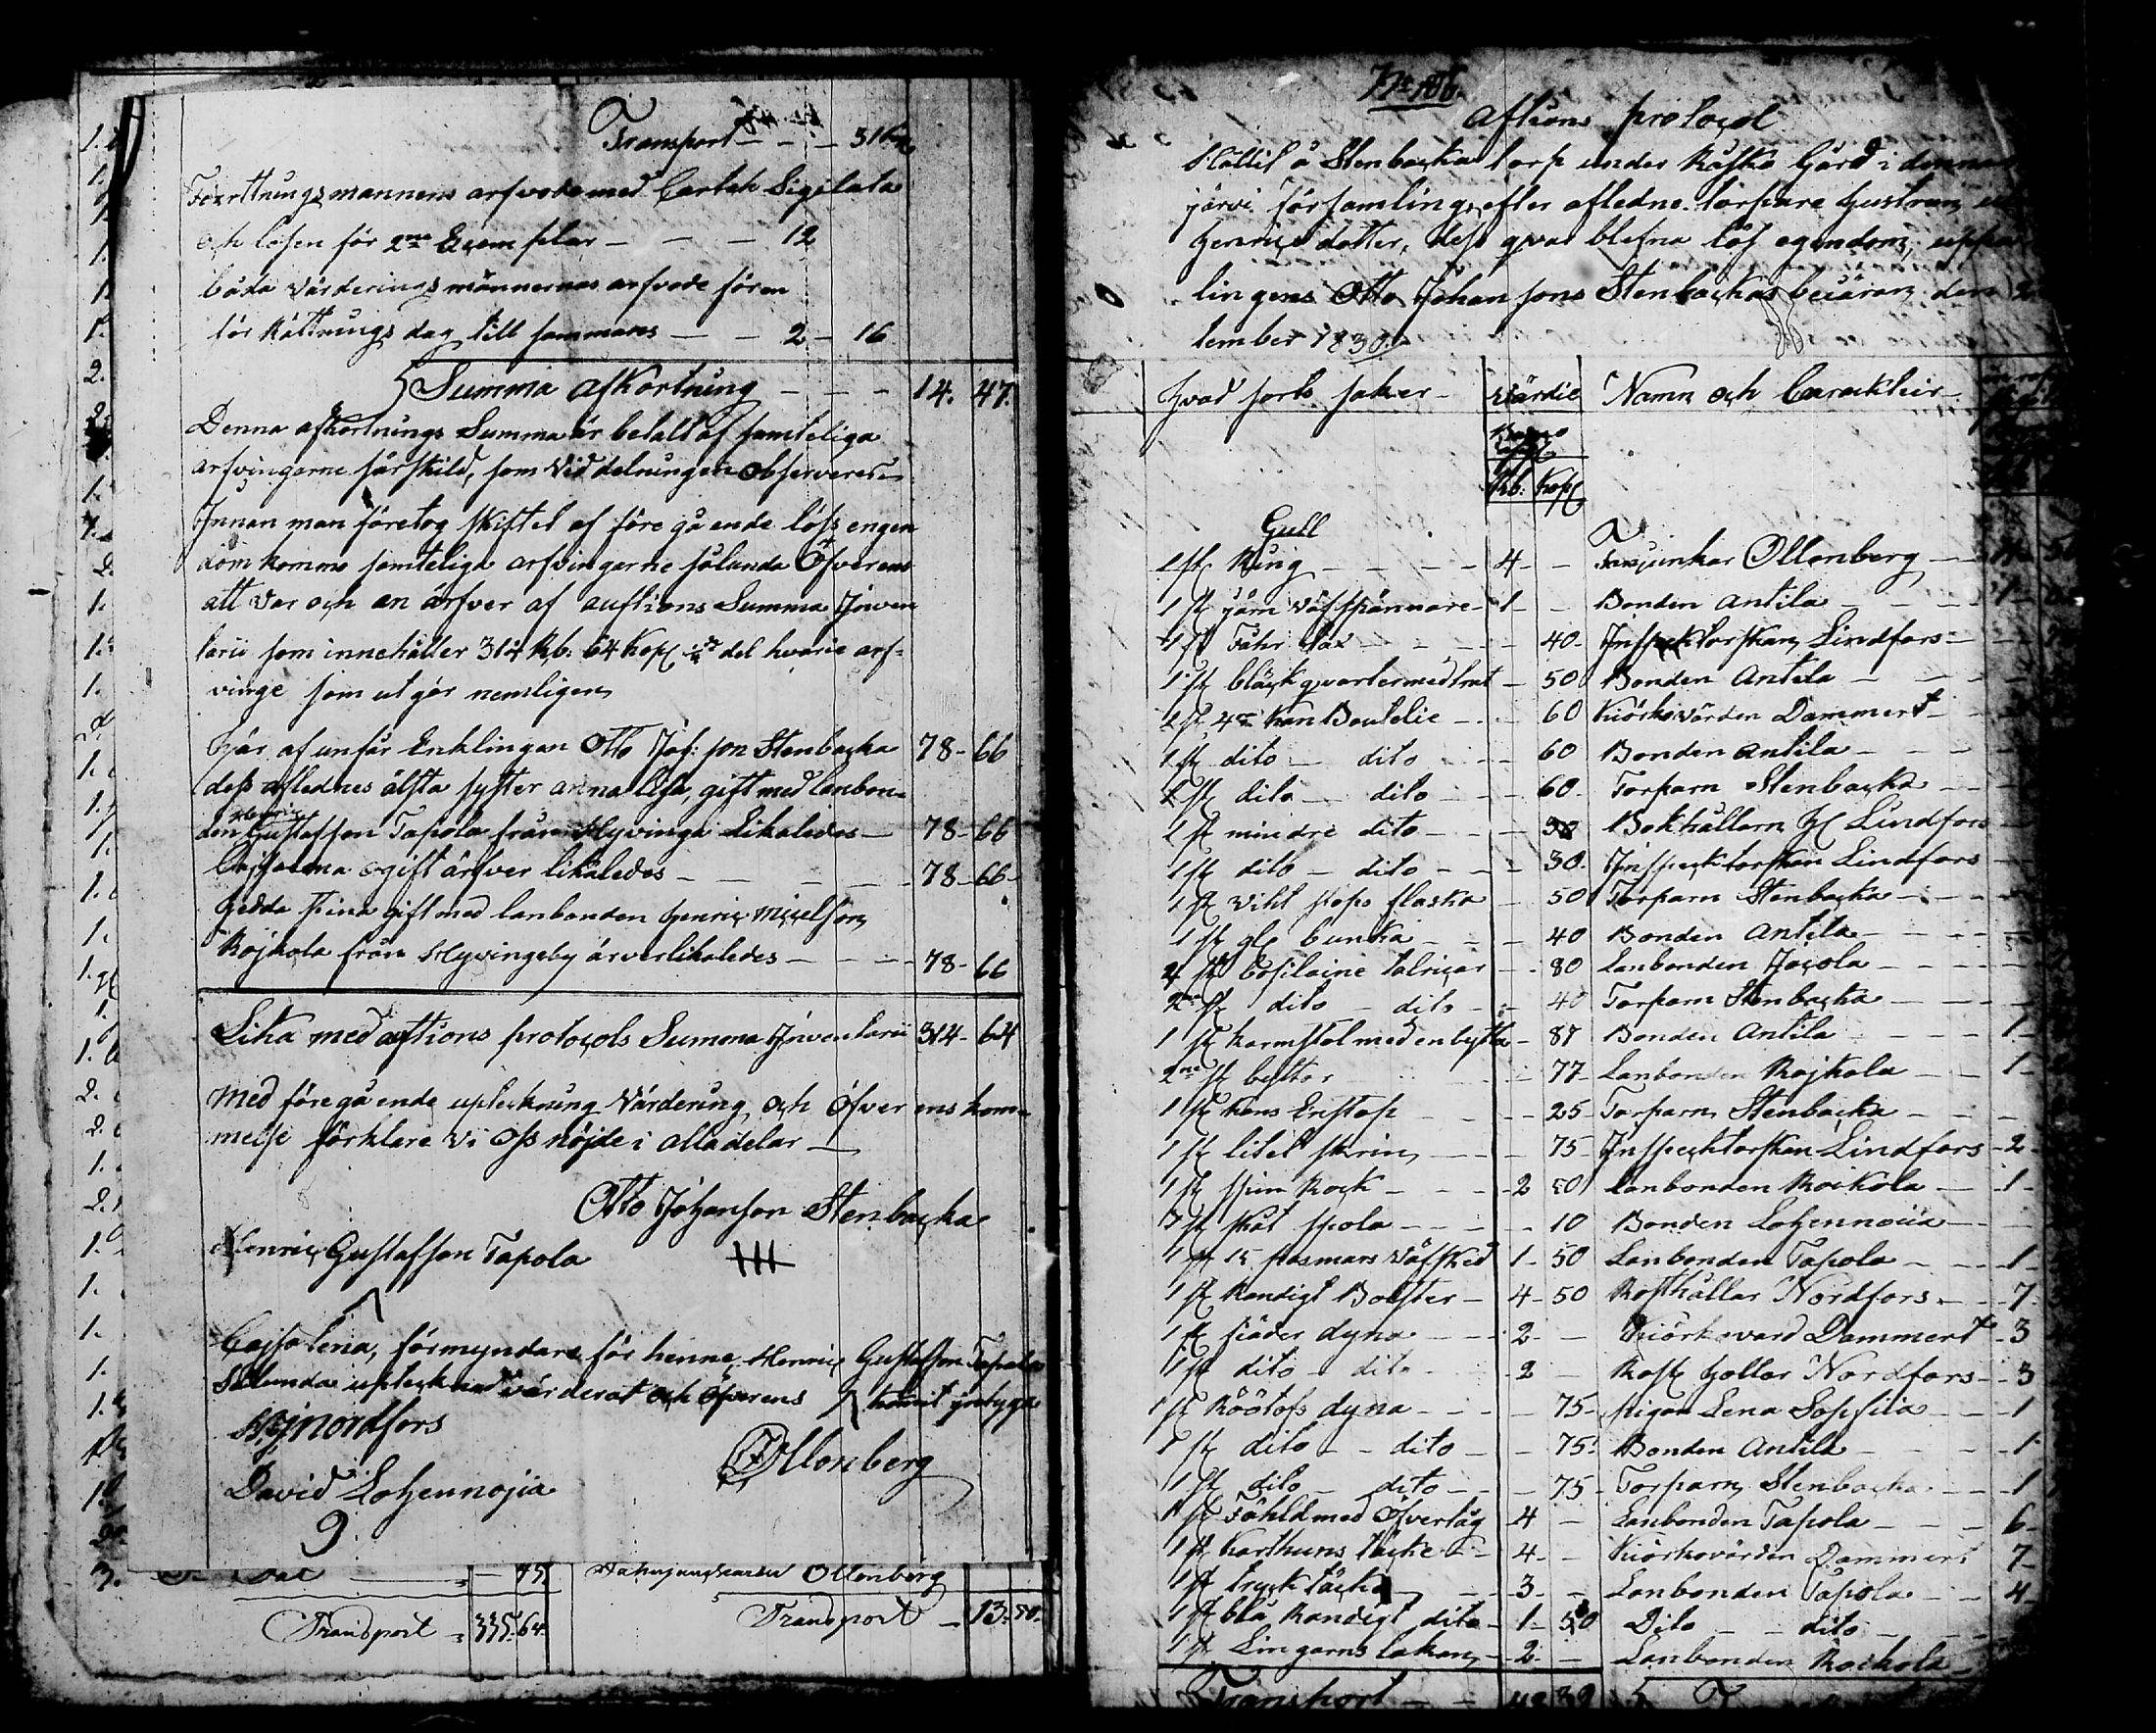 Transport - - - 316
Förrttnings mannens arfvode med Cartah Sigilata
och lösen för 2ne Exemplar - - - 12
båda Värderings männernas arfvode för en
för Rättnings dag till sammans - - 2 - 16
Summa afkortning - - - 14. 47.
Denna afkortnings Summa är betalt af samteliga
arfvingarne särskild, som Vid delningen observeras
Innan man företog skiftet af före gående löfs egen
dom komme samteliga arfvingarne sålunda Öfverens
att var och en ärfver af auktions Summa Inven
tarii som innehåller 314 Rb: 64 Kop del hvarie arf=
vinge som utgör nemligen
Här af unfår Enklingen Otto Joh: son Stenbacka 78 - 66
dess aflednes älsta syster anna Lisa, gift med lanbon=
Henric
den Gustafson Tapola från Hyvinge Likaledes - 78 - 66
Cajsa lena ogift ärfver likaledes - - - - 78 - 66 -
Hedda Stina gift med lanbonden Henric Micelson
Rojkola från Hyvingeby ärver likaledes - - - 78 - 66
Lika med aktions protocols Summa Inventarii 314 - 64
Med före gående upteckning Värdering och Öfver ens kom=
melse förklare Vi Oss nöjde i alla delar -
Otto Johanson Stenbacka
Henric Gustafson Tapola
Cajsa lena, förmyndare för henne, Henric Gustafson Tapola
Sålunda uptecknad värderat och öfverens komit betyga
nordfors
Ollonberg
David Lohennojia
45 Ollonberg
Transport - 335. 64. Transport - 13. 50.
Aktions protocol
Hållit å Stenbacka torp under Råskò Gård i
järvi församling, efter afledne torpare hustrun
Henrics dotter, dess qvar blefna lös egendom,
lingens Otto Johansons Stenbackas begäran den
tember 1830.
Hvad sorts saker - Värdie Namn och Carackteir -
Rb: Kop
Gull
1 st Ring - - - - 4 - - Ollonberg
1 st järn väf spännare - 1 - - Bonden Antila - - - 1
1 st Fåhr sax - - - - 40 - Inspektorskan Lindfors -
1 st bläck qvarter med - 50 Bonden Antila - -
1 st kan Boutelie - - 60 Kiörkovärden Dammert -
1 st dito - dito - - 60 Bonden Antila - - -
1 st dito - dito - - 60 - Torparn Stenbacka - -
1 st mindre dito - - - 30 Bokhållarn Lindfors
1 st dito - dito - - - 30 - Inspecktorskan Lindfors
1 st Vihl stops flaska - 50 Torparn Stenbacka - - -
1 st gl bunka - - - 40 Bonden Antila - - -
4 st Cosilaine talricar - - 80 Lanbonden Jacola - - -
2ne st dito - dito - - 40 Torparn Stenbacka - - -
1 st karmstol med en bytta - 87 Bonden Antila - - - 1 -
2ne st byttor - - 77 - Lanbonden Rojkola - - 1 -
1 st kans - - - 25 - Torparn Stenbacka - - -
1 st litet skrin - - - 75 - Inspecktorskan Lindfors - 2 -
1 st spin Rock - - - 2 50 Lanbonden Roikola - - 1 -
st skåt spola - - - - 10 Bonden Lohennoiia - -
1 st 15 pasmars väfsked 1 - 50 Lanbonden Tapola - - - 1 -
1 st Randigt Bolster - 4 - 50 Rosthållar Nordfors - - - 7.
1 st fiäder dyna - - - 2 - - Kiörkovard Dammert - 3
1 st dito - dito - 2 - Rost hollar Nordfors - - 3
1 st Röötofs dyna - - - - 75 - pigan Lena Sophia - - - 1
1 st dito - - dito - - 75 - Bonden Antila - - - 1 -
1 st dito - dito - - - 75 - Torparn Stenbacka - - - 1
1 st Fähld med Öfvertåg 4 - Lanbonden Tapola - - - 6 -
1 st Karthuns täcke - - 4 - - Kiörkovärden Dammert 7 -
1 st tryck täcke - - 3 - - Lanbonden Tapola - - 4
1 st blå Randigt dito - 1 - 50 Dito - - dito -
1 st Lin garns lakan - - 2 - - Lanbonden Roikola -
Transport - -